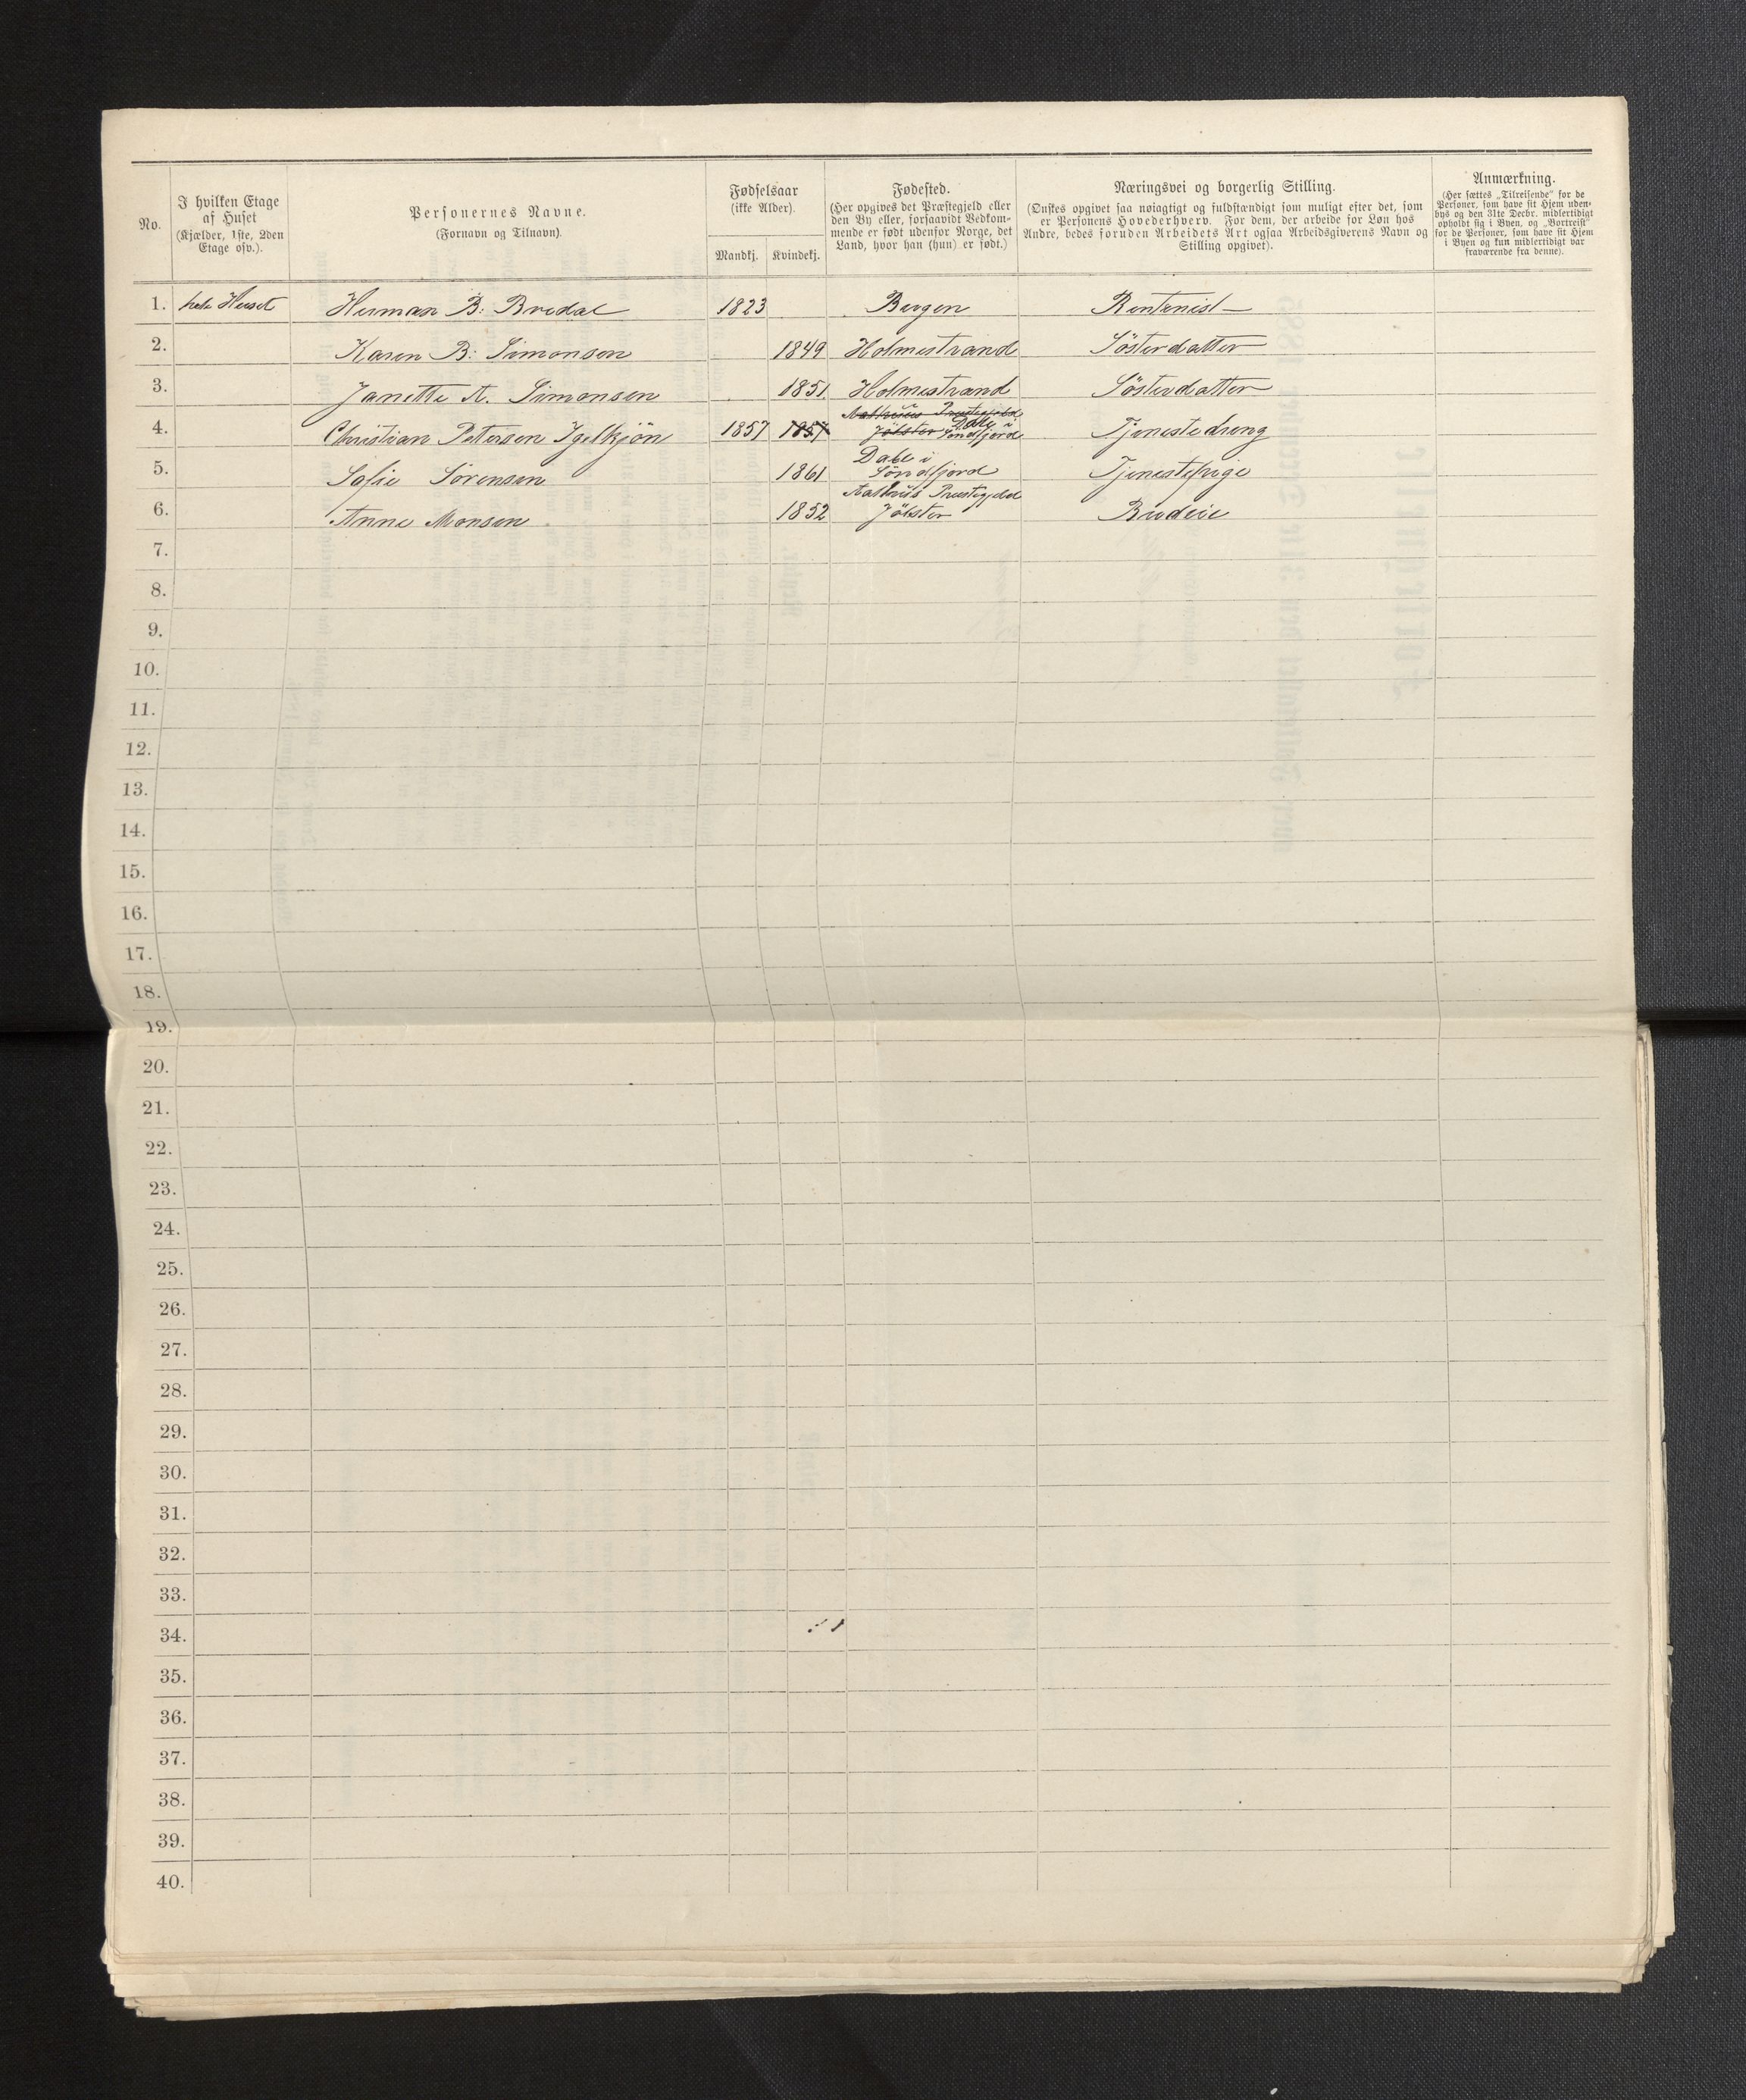 No.
I hvilken Etage
af Huset
(Kjælder, 1ste, 2den
Etage osv.).
Personernes Navne.
(Fornavn og Tilnavn).
Fødselsaar
(ikke Alder).
Mandkj. Kvindekj.
Fødested.
(Her opgives det Præstegjeld eller
den By eller, forsaavidt Vedkom-
mende er født udenfor Norge, det
Land, hvor han (hun) er født.)
Næringsvei og borgerlig Stilling.
(Ønskes opgivet saa nøiagtigt og fuldstændigt som muligt efter det, som
er Personens Hovederhverv. For dem, der arbeide for Løn hos
Andre, bedes foruden Arbeidets Art ogsaa Arbeidsgiverens Navn og
Stilling opgivet).
Anmærkning.
(Her sættes „Tilreisende" for de
Personer, som have sit Hjem uden-
bys og den 31te Decbr. midlertidigt
opholdt sig i Byen, og „Bortreist"
for de Personer, som have sit Hjem
i Byen og kun midlertidigt var
fraværende fra denne).
1. hele Huset Herman B: Bredal 1823 Bergen Rentenist
2. Karen B: Simonsen 1849 Holmestrand Sösterdatter
3. Janette A. Simonsen 1851 Holmestrand Sösterdatter
4. Christian Petersen Igelkjön 1857 1857 Aalhuus Prestegjeld
Jölster Dale i
Söndfjord Tjenestedreng
5. Sofie Sörensen 1861 Dale i
Söndfjord Tjenestepige
6. Anne Monsen 1852 Aalhuus Prestegjeld
Jölster Budeie
7.
8.
9.
10.
11.
12.
13.
14.
15.
16.
17.
18.
19.
20.
21.
22.
23.
24.
25.
26.
27.
28.
29.
30.
31.
32.
33.
34.
35.
36.
37.
38.
39.
40.